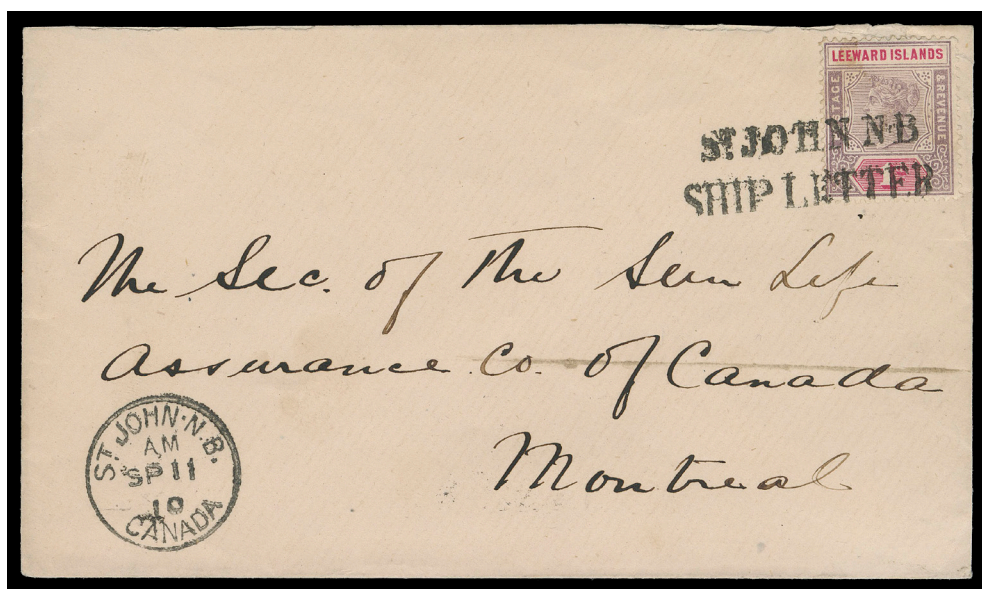 LEEWARD ISLANDS
POSTAGE & REVENUE
ST JOHN N B
SHIP LETTER
The Sec. of The Sun Life
Assurance Co. of Canada
Montreal
ST JOHN·N.B.
AM
SP 11
10
CANADA